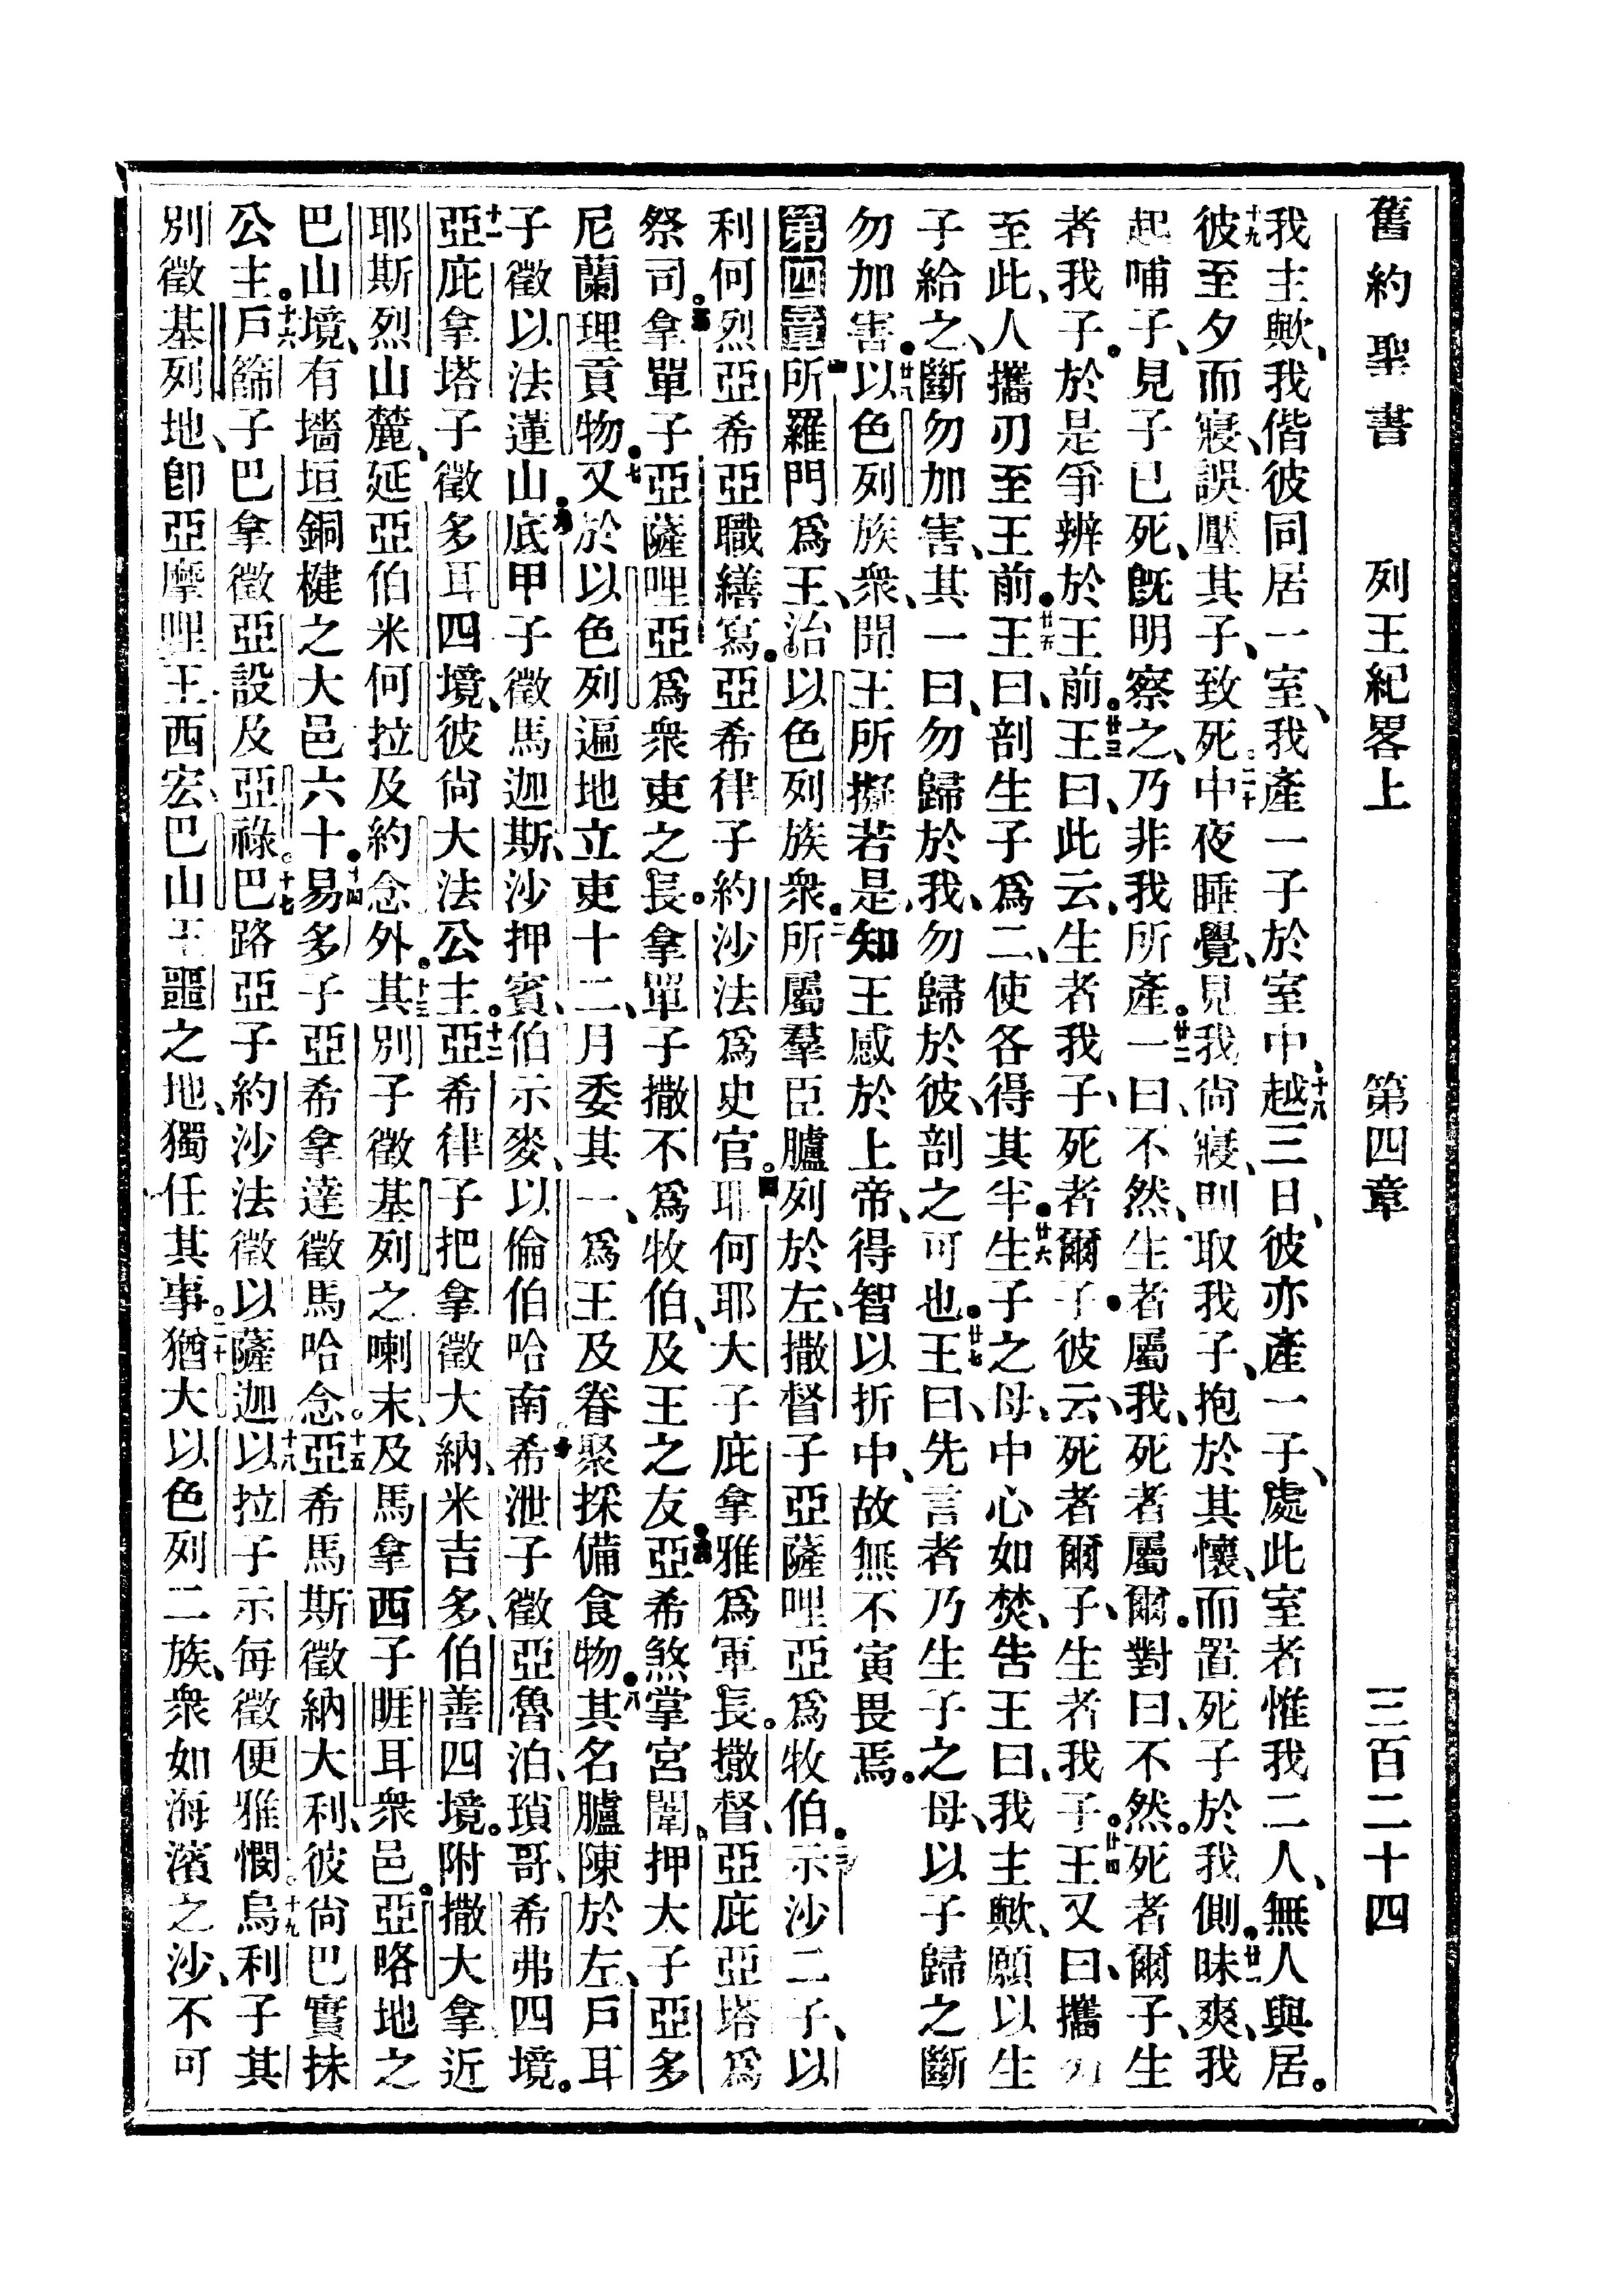 舊約聖書 列王紀畧上 第四章 三百二十四
我主歟、我偕彼同居一室、我產一子於室中、十八越三日、彼亦產一子、處此室者惟我二人、無人與居。
十九彼至夕而寢、誤壓其子、致死。二十中夜睡覺、見我尙寢、則取我子、抱於其懷、而置死子於我側。廿一昧爽、我
起哺子、見子已死、旣明察之、乃非我所產。廿二一曰、不然、生者屬我、死者屬爾。對曰、不然。死者爾子、生
者我子。於是爭辨於王前。廿三王曰、此云、生者我子、死者爾子。彼云、死者爾子、生者我子。廿四王又曰、攜刃
至此、人攜刃至王前。廿五王曰、剖生子爲二、使各得其半。廿六生子之母、中心如焚、告王曰、我主歟、願以生
子給之、斷勿加害、其一曰、勿歸於我、勿歸於彼、剖之可也。廿七王曰、先言者乃生子之母、以子歸之、斷
勿加害。廿八以色列族衆、聞王所擬若是、知王感於上帝、得智以折中、故無不寅畏焉。
第四章 一所羅門爲王、治以色列族衆。二所屬羣臣臚列於左、撒督子亞薩哩亞爲牧伯。三示沙二子、以
利何烈亞希亞職繕寫。亞希律子約沙法爲史官。四耶何耶大子庇拿雅爲軍長。撒督、亞庇亞塔爲
祭司。五拿單子亞薩哩亞爲衆吏之長。拿單子撒不爲牧伯、及王之友。六亞希煞掌宮闈、押大子亞多
尼蘭理貢物。七又於以色列遍地立吏十二、月委其一、爲王及眷聚採備食物。八其名臚陳於左、戶耳
子徵以法蓮山。九底甲子徵馬迦斯、沙押賓、伯示麥、以倫伯哈南。十希泄子徵亞魯泊、瑣哥、希弗四境。
十一亞庇拿塔子徵多耳四境、彼尙大法公主。十二亞希律子把拿徵大納、米吉多、伯善四境。附撒大拿近
耶斯烈山麓、延亞伯米何拉及約念外。十三其別子徵基列之喇末、及馬拿西子睚耳衆邑。亞略地之
巴山境、有墻垣銅楗之大邑六十。十四易多子亞希拿達徵馬哈念。十五亞希馬斯徵納大利、彼尙巴實抹
公主。十六戶篩子巴拿徵亞設及亞祿。十七巴路亞子約沙法徵以薩迦。十八以拉子示每徵便雅憫。十九烏利子其
別徵基列地、卽亞摩哩王西宏、巴山王噩之地、獨任其事。二十猶大以色列二族、衆如海濱之沙、不可